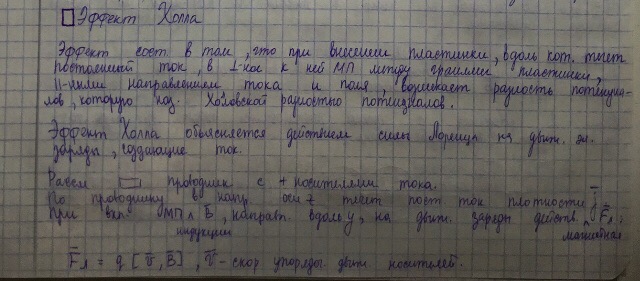 Эффект Холла
Эффект сост. в том, что при внесении пластинки, вдоль кот. течет
постоянный ток, в ⊥-ное к ней МП между гранями пластинки,
||-ными направлением тока и поля, возникает разность потенциа-
лов, которую наз. Холловской разностью потенциалов.
Эффект Холла объясняется действием силы Лоренца на движ. эл.
заряды, создающие ток.
Рассм ▭ проводник с + носителями тока.
По проводнику в напр. оси z течет пост ток плотности j̅
При вкл. МП B̅, направл. вдоль y, на движ. заряды действ. F̅л:
индукции магнитная
F̅л = q [v̅, B̅], v̅ - скор упорядоч движ. носителей.